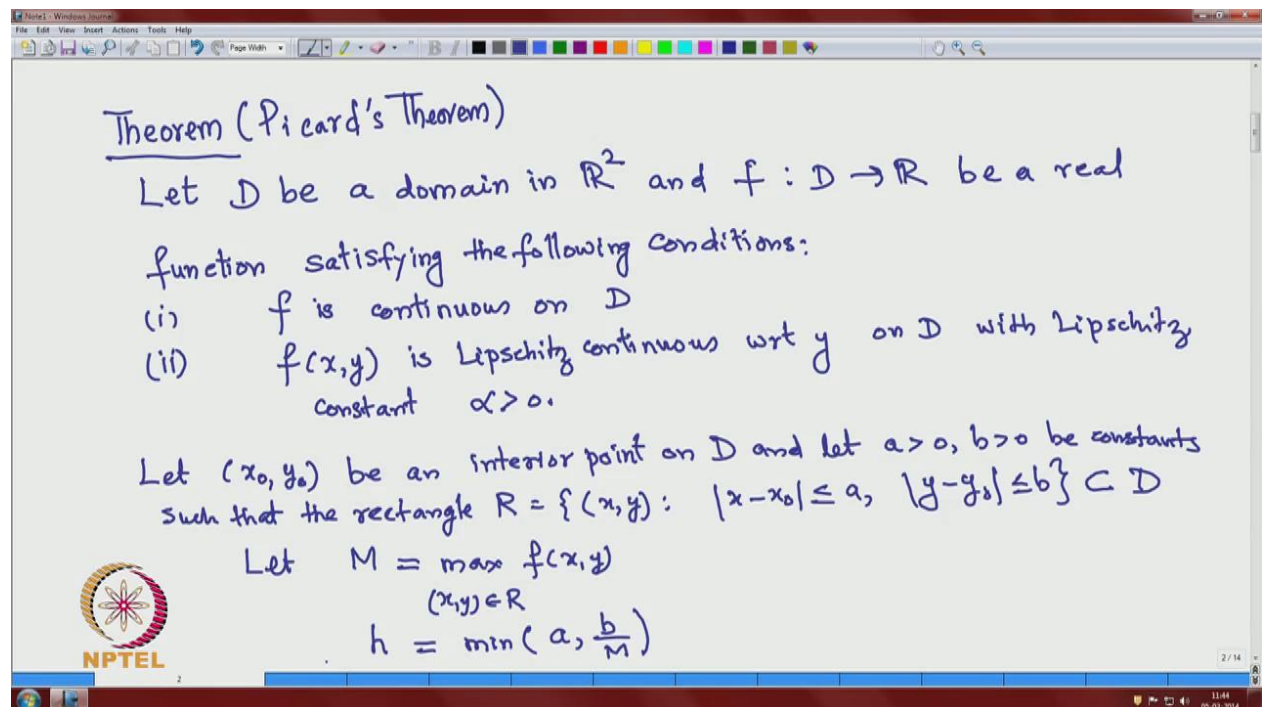 Note1 - Windows Journal
File Edit View Insert Actions Tools Help
Page Width
Theorem (Picard's Theorem)
Let D be a domain in ℝ² and f : D → ℝ be a real
function satisfying the following conditions:
(i) f is continuous on D
(ii) f(x,y) is Lipschitz continuous wrt y on D with Lipschitz
constant α > 0.
Let (x₀, y₀) be an interior point on D and let a>0, b>0 be constants
such that the rectangle R = {(x,y) : |x-x₀| ≤ a, |y-y₀| ≤ b} ⊂ D
Let M = max f(x,y)
(x,y) ∈ R
h = min(a, b/M)
NPTEL
2 / 14
2
11:44
05-03-2014